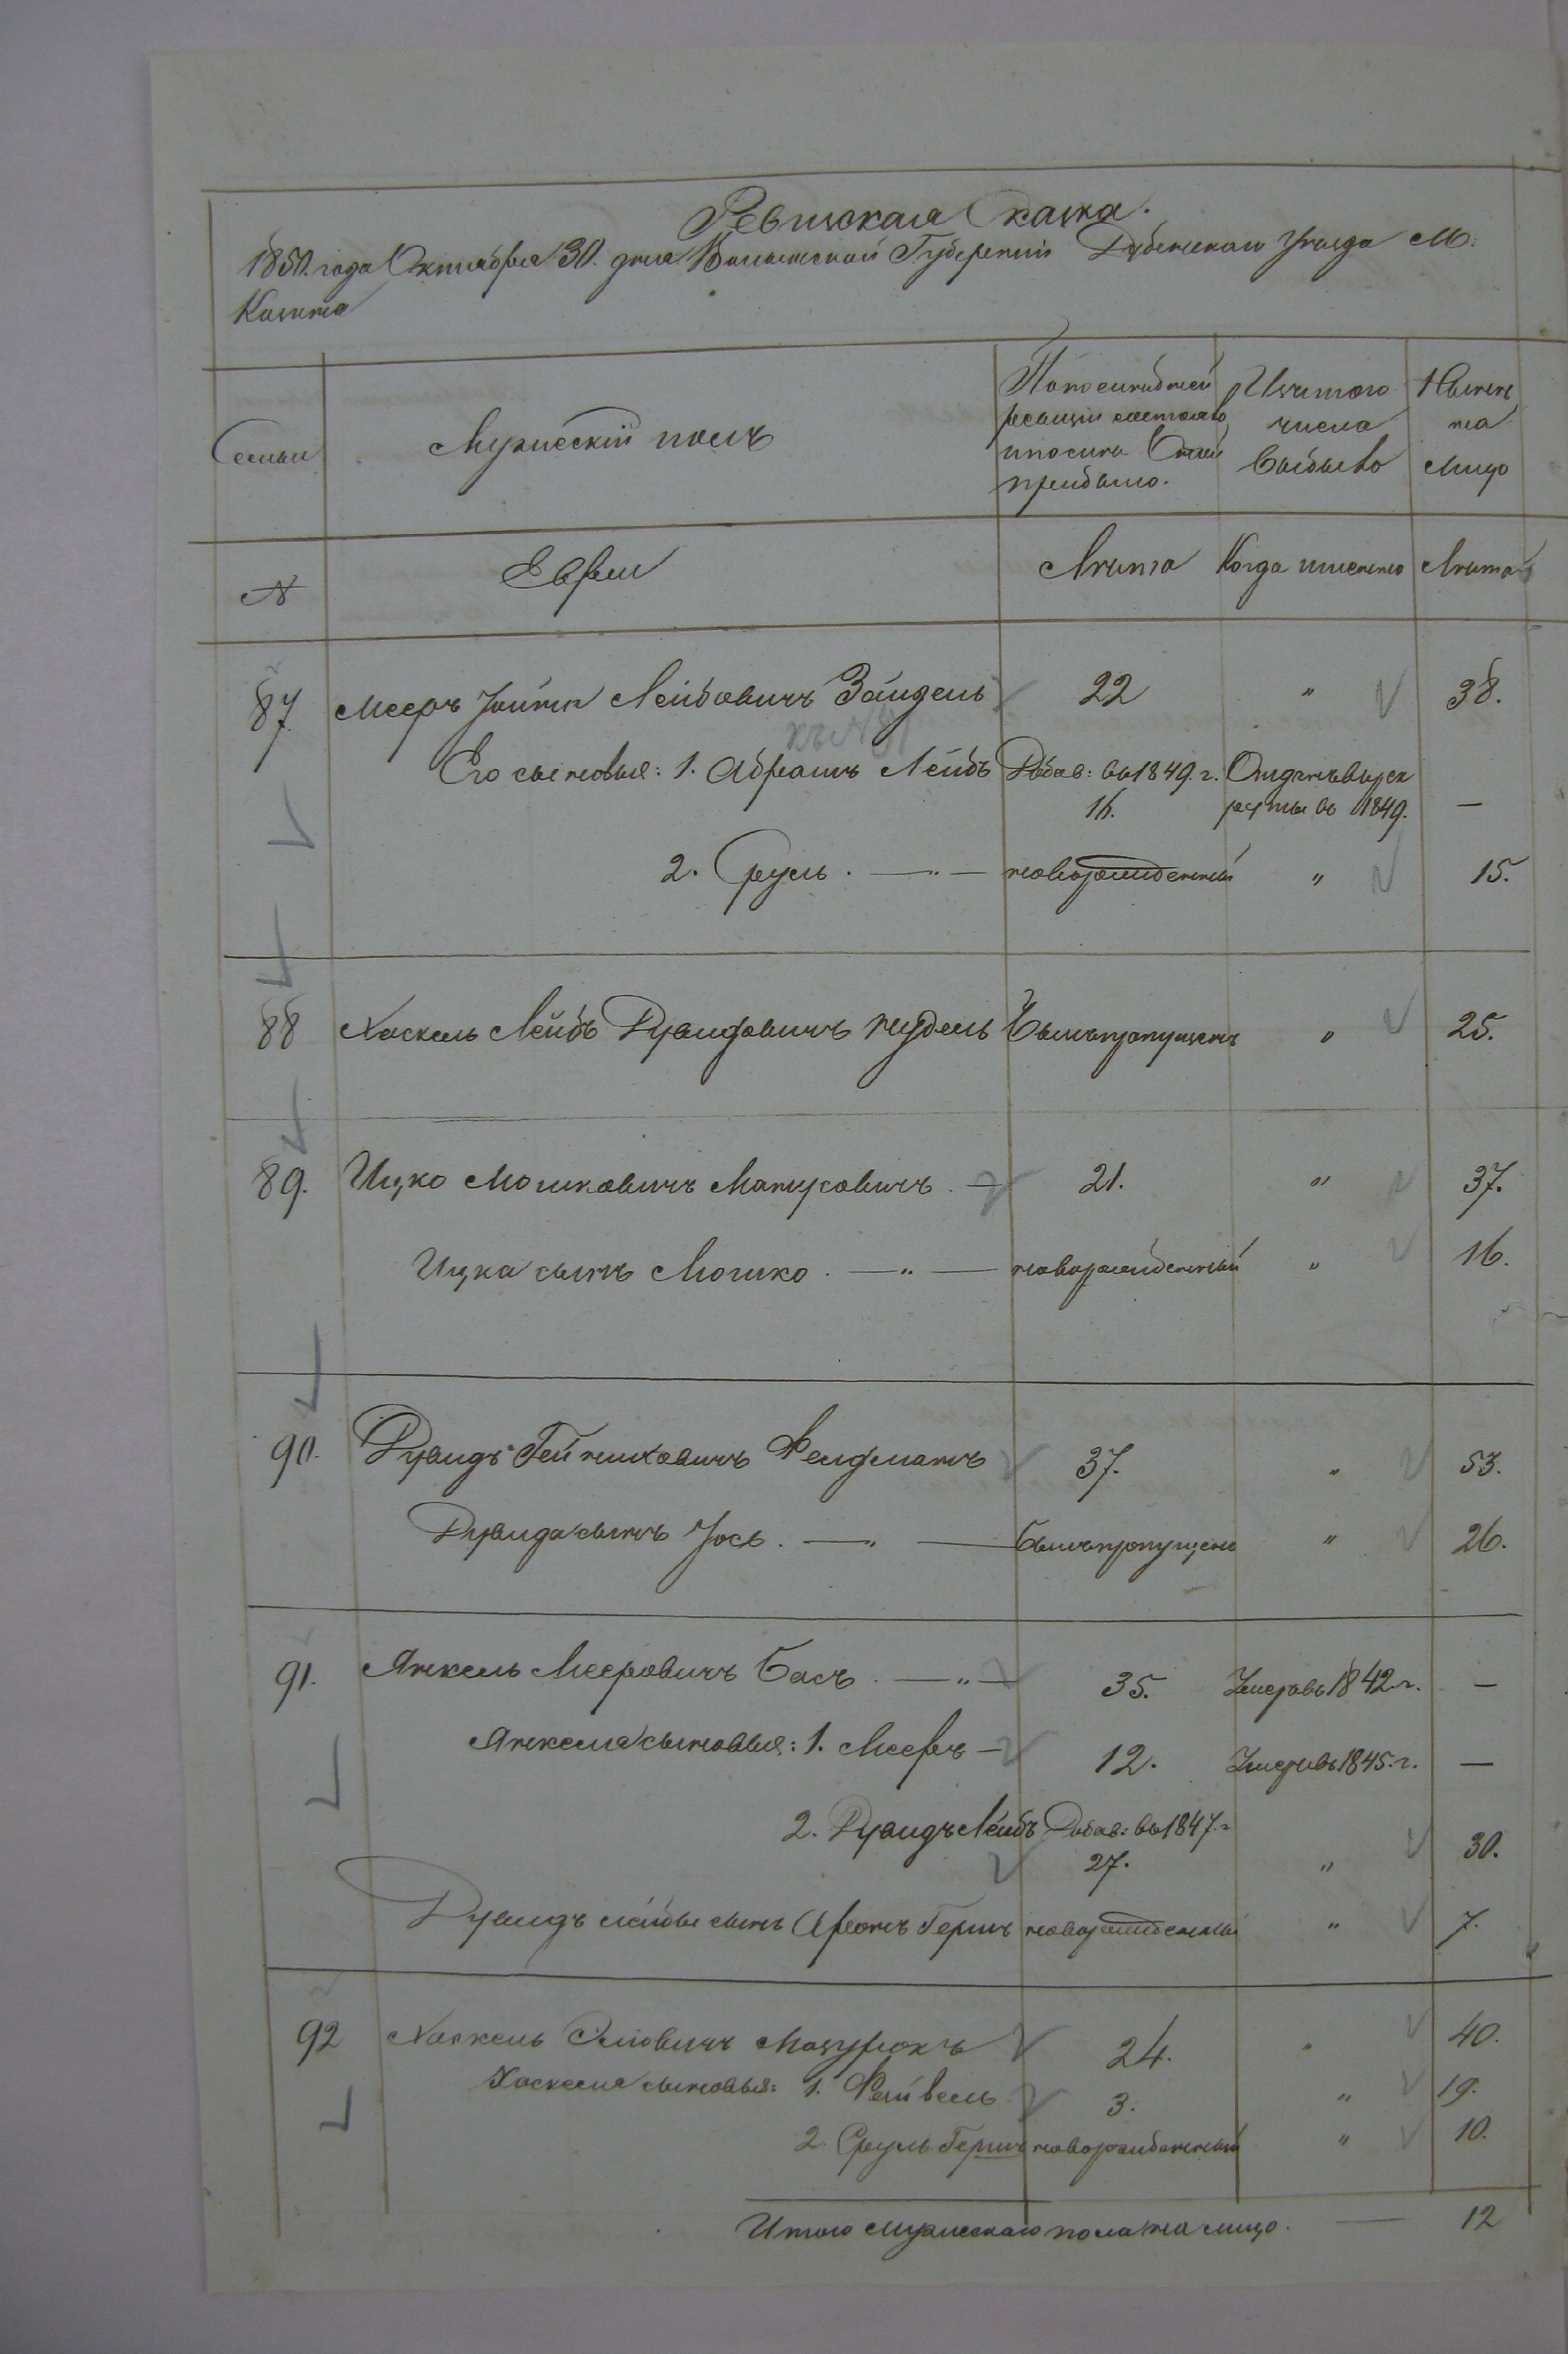 Ревизская Сказка.
1850. года Октября 30. дня Волынской Губернии Дубенскаго Уезда М:
Козина
Семьи
Мужеский полъ
По последней
ревизии состояло
и после Оной
прибыло.
Изътого
числа
выбыло
Ныне
на
лицо
N
Евреи
Лета
Когда именно
Лета
87. Мееръ Йойна Лейбовичъ Зайдель 22 " 38.
къ N 81
Его сыновья: 1. Абрамъ Лейбъ Добав: въ 1849. г. Отданъ въ рек
16. руты въ 1849. —
2. Сруль. —"— новорожденный " 15.
88 Хаскель Лейбъ Дувидовичъ Нудель Былъ пропущенъ " 25.
89. Ицко Мошковичъ — 21. " 37.
Ицка сынъ Мошко. —"— новорожденный " 16.
90. Дувидъ Гейниховичъ Фельдманъ 37. " 53.
Дувида сынъ Йось. —"— былъ пропущенъ " 26.
91. Янкель Мееровичъ Басъ. —"— 35. Умеръ въ 1842. г. —
Янкеля сыновья: 1. Мееръ — 12. Умеръ въ 1845. г. —
2. Дувидъ Лейбъ Добав: въ 1847. г
27. " 30.
Дувидъ Лейбы сынъ Аронъ Гершъ новорожденный " 7.
92 Хаскель Эліовичъ Мазурокъ 24. " 40.
Хаскеля сыновья: 1. Файвель 3. " 19.
2. Сруль Гершъ новорожденный " 10.
Итого мужескаго пола на лицо. — 12